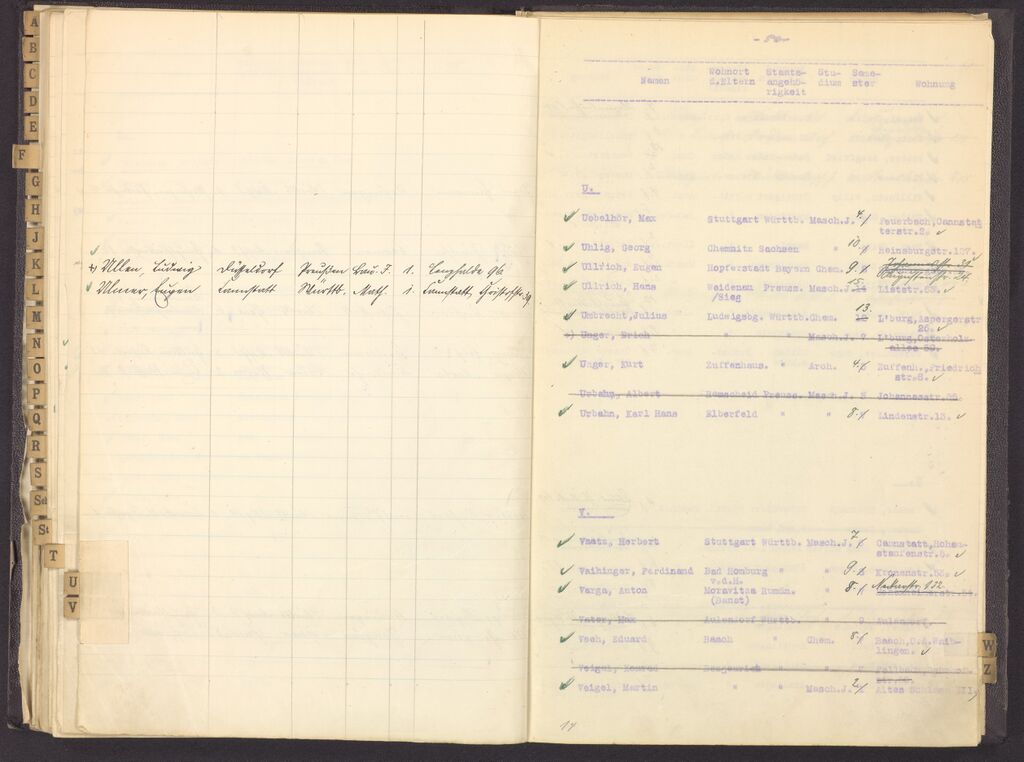 A
B
C
D
E
F
G
H
J
K
L
M
N
O
P
Q
R
S
Sch
St
T
U
V
Ullen, Ludwig Düsseldorf Preußen Bau.J. 1. 96
Ulmer, Eugen Cannstatt Württ. Math. 1. Cannstatt,
Namen Wohnort d.Eltern Staats-angehö-rigkeit Stu-dium Seme-ster Wohnung
U.
Uebelhör, Max Stuttgart Württb. Masch.J. 4. Feuerbach,Cannstat
terstr.2.
Uhlig, Georg Chemnitz Sachsen " 10. Reinsburgstr.107.
Ullrich, Eugen Hopferstadt Bayern Chem. 9.
Ullrich, Hans Weidenau Preuss. Masch.J. 13. Liststr.53.
/Sieg
Umbrecht,Julius Ludwigsbg. Württb.Chem. 13. L'burg,Aspergerstr
26.
Unger, Erich " " Masch.J. 9 L'burg,Osterholz
allee 50.
Unger, Kurt Zuffenhaus. " Arch. 4. Zuffenh.,Friedrich
str.8.
Urbahn, Albert Remscheid Preuss. Masch.J. 8 Johannesstr.
Urbahn, Karl Hans Elberfeld " " 8. Lindenstr.13.
V.
Vaatz, Herbert Stuttgart Württb. Masch.J. 7 Cannstatt,Hohen
staufenstr.6.
Vaihinger, Ferdinand Bad Homburg " " 9. Kronenstr.
v.d.H.
Varga, Anton Moravitza Rumän. " 8. Neckarstr. 132
(Banat)
Vater, Max Aulendorf Württb. " 9 Aulendorf.
Veeh, Eduard Haach " Chem. 8. Haach,O.A.Waib-
lingen.
Veigel, Konrad " "
Veigel, Martin " " Masch.J. 2. Altes Schloss III.
17
W
Z